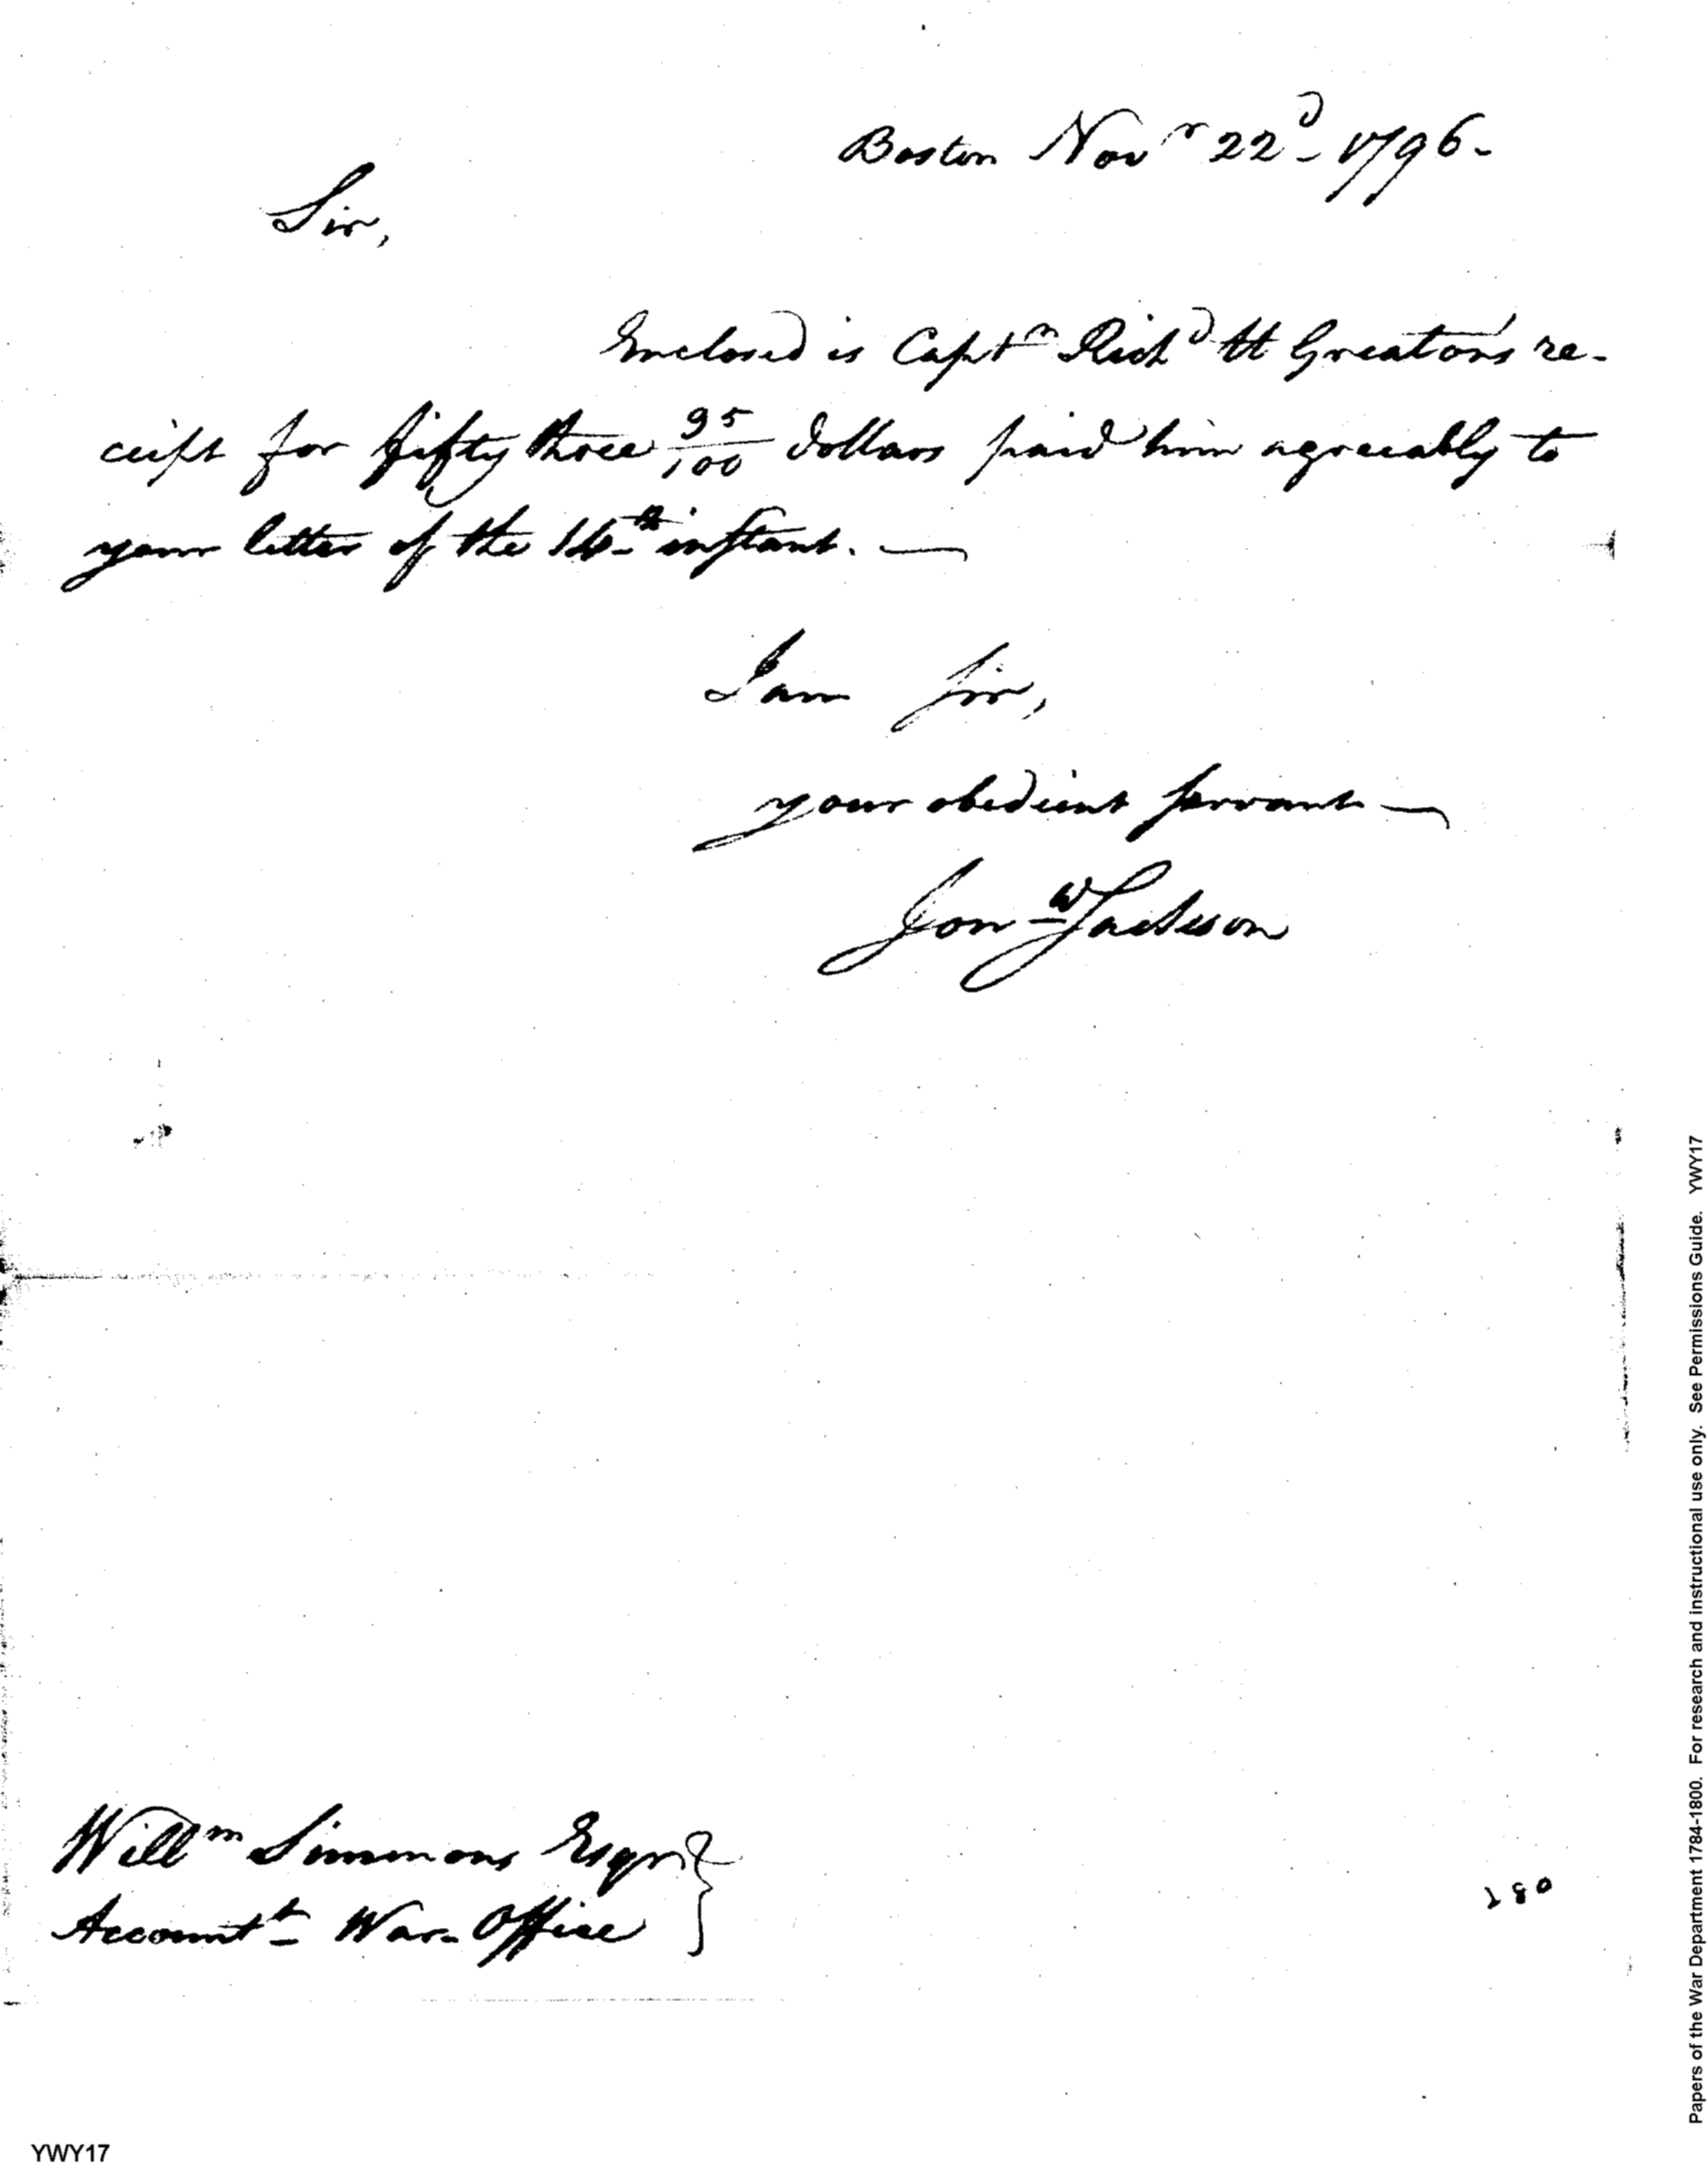 Boston Nov.r 22d 1796-
Sir,
Enclosed is Captn Richd H Greaton's re-
ceipt for fifty three 95/100 dollars paid him agreeably to
your letter of the 14th instant. —
I am Sir,
your obedient servant —
Jon Jackson
Willm Simmons Esqr
Accountt War Office
Papers of the War Department 1784-1800. For research and instructional use only. See Permissions Guide. YWY17
YWY17